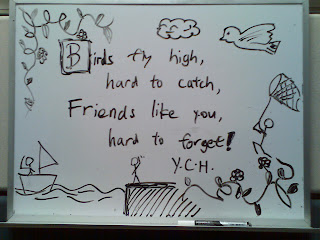 Birds fly high,
hard to catch,
Friends like you,
hard to forget!
Y.C.H.